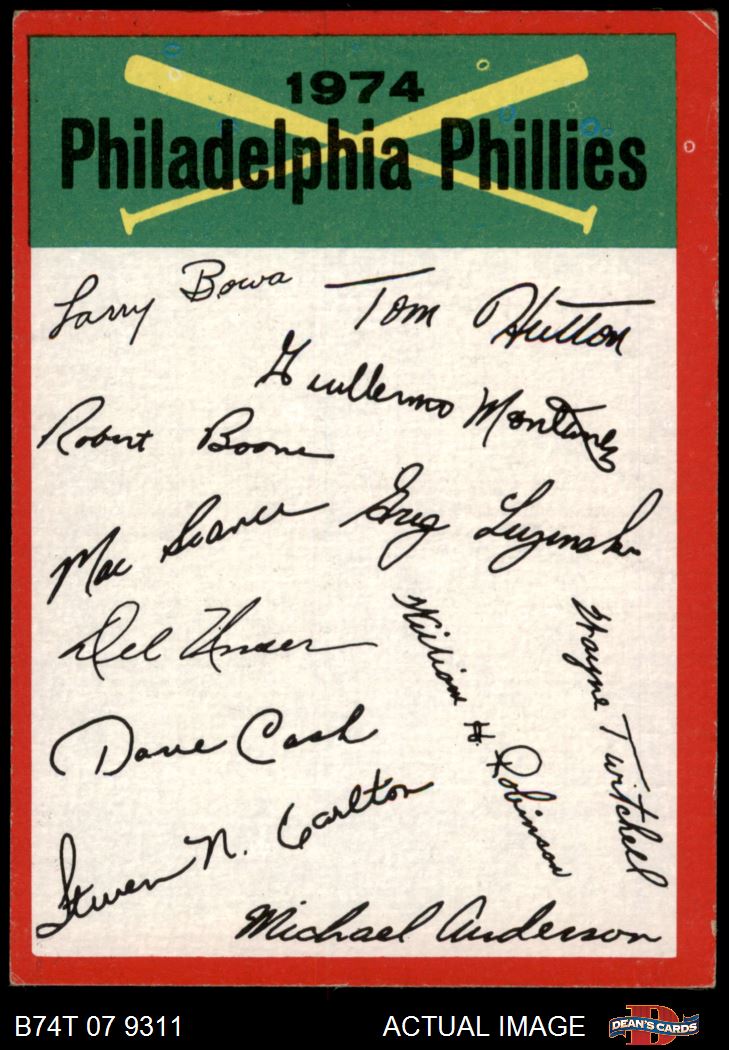 1974
Philadelphia Phillies
Larry Bowa
Tom Hutton
Guillermo Montanez
Robert Boone
Mac Scarce
Greg Luzinski
Del Unser
William H Robinson
Wayne Twitchell
Dave Cash
Steven N. Carlton
Michael Anderson
B74T 07 9311
ACTUAL IMAGE
D
DEAN'S CARDS